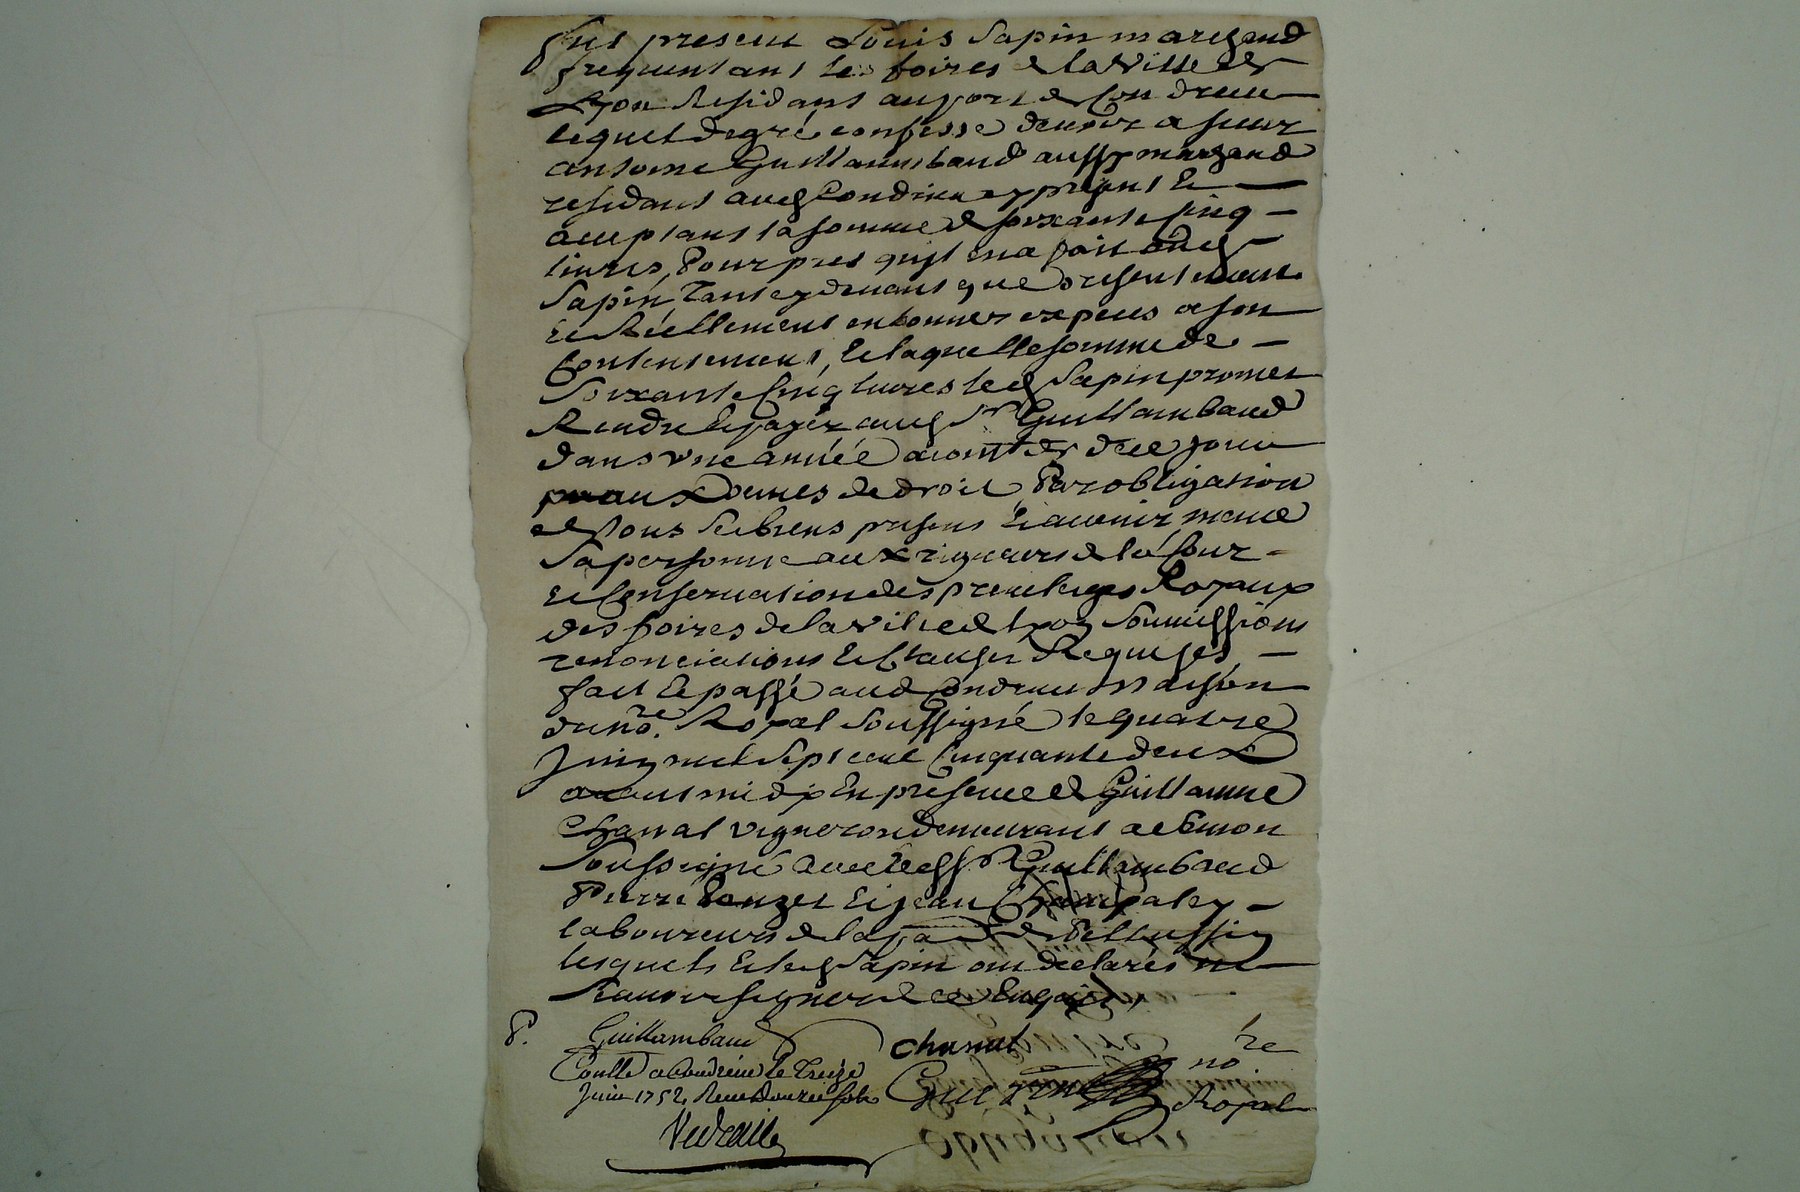 fut present Louis Sapin marchand
frequentant les foires de la Ville de
Lyon Residant au port de Condrieu
lequel de gré confesse devoir a sieur
antoine Guillambaud aussy marchand
residant aud Condrieu cy present et
aceptant la somme de soixante cinq
livres, Pour pres qu'il en a fait aud
Sapin, Tant cy devant que presentement
et Réellement en bonnes especes a son
Contentement, Et laquelle somme de
Soixante Cinq livres led Sapin promet
Rendre Et payer aud Sr Guillambaud
dans une année a compter de ce jour
aux peines de droit Par obligation
de Tous Ses biens presens Et avenir meme
Sa personne aux rigueurs de la Cour
et Conservation des privileges Royaux
des foires de la ville de Lyon Soumissions
renonciations Et Clauses Requises
fait Et passé aud Condrieu Maison
du nore. Royal Soussigné le quatre
Juin mil Sept cent Cinquante deux
avant midy En presence de Guillaume
Chanal vigneron demeurant a
Soussigné avec led Sr Guillambaud
Pierre Et jean
laboureurs de la de Pellussin
lesquels Et led Sapin ont declarés ne
Scavoir signer de ce Enquis
P. Guillambaud chanal nore
Conllé a Condrieu le Treize Royal
Juin 1752, Reçu Douze sols
obligation